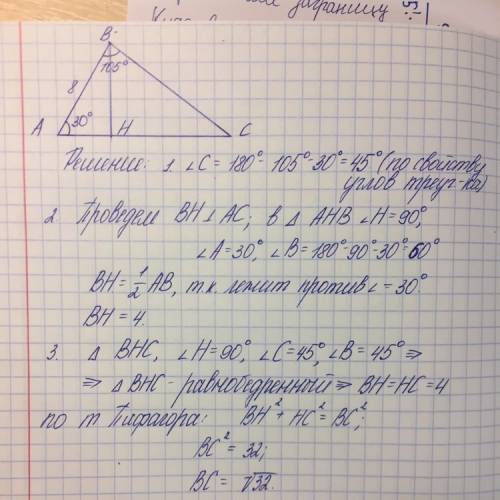 заграницу
B
105°
8
A 30° H C
Решение: 1. ∠C = 180° - 105° - 30° = 45° (по свойству
углов треуг-ка)
2. Проведем BH ⊥ AC; в △ AHB ∠H = 90°,
∠A = 30°, ∠B = 180° - 90° - 30° = 60°
BH = 1/2 AB, т.к. лежит против ∠ = 30°
BH = 4.
3. △ BHC, ∠H = 90°, ∠C = 45°, ∠B = 45° ⇒
⇒ △ BHC - равнобедренный ⇒ BH = HC = 4
по т Пифагора: BH² + HC² = BC²;
BC² = 32;
BC = √32.